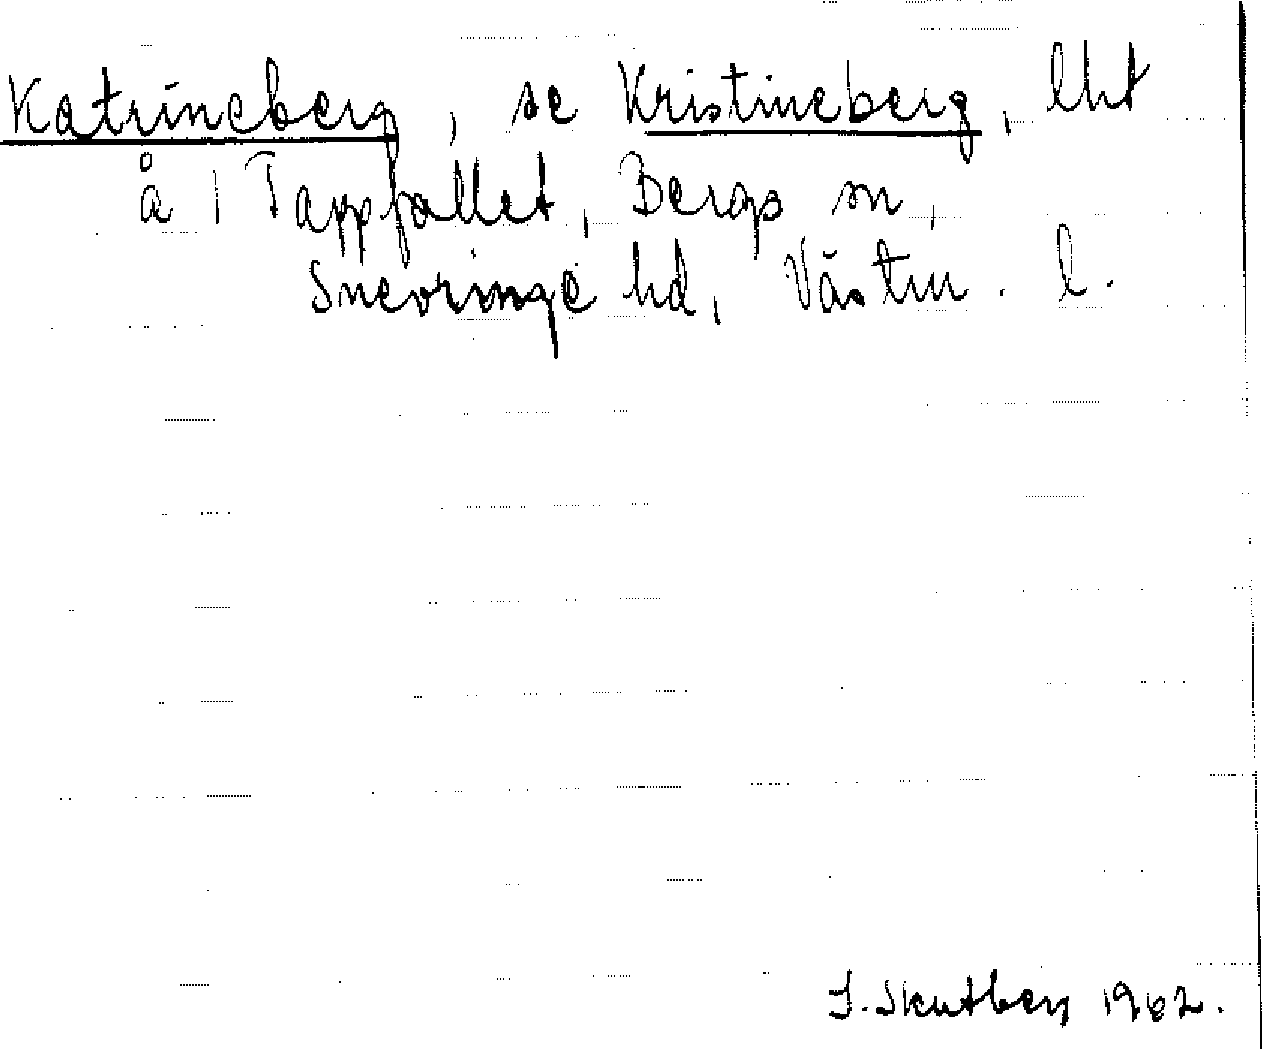 Katrineberg, se Kristineberg, lht
å 1 Tappfallet, Bergs sn,
Snevringe hd, Västm. l.
I. Skutberg 1962.